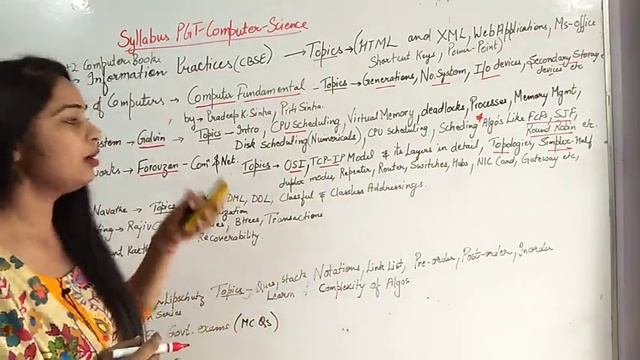 Syllabus PGT-Computer-Science
+2 Computer Book
Information Practices (CBSE) → Topics → (HTML and XML, Web Applications, Ms-office
Shortcut Keys, Power-Point)
of Computers → Computer Fundamental - Topics → Generations, No. System, I/o devices, Secondary Storage
by → Pradeep K. Sinha, Priti Sinha. devices etc
stem → Galvin → Topics - Intro, CPU Scheduling, Virtual Memory, deadlocks, Processes, Memory Mgmt,
Disk Scheduling (Numericals), CPU Scheduling, Algo's Like FCFS, SJF,
Round Robin etc.
works → Forouzan - Comm & Net. Topics → OSI, TCP-IP Model & its Layers in detail, Topologies, Simplex-Half
duplex modes, Repeater, Router, Switches, Hubs, NIC Card, Gateway etc,
Navathe → Topics DML, DDL, Classful & Classless Addressings.
Btrees, Transactions
Recoverability.
Lipschutz Topics - stack Notations, Link List, Pre-order, Post-order, Inorder
Series Learn Complexity of Algos
Govt. exams (MCQs)